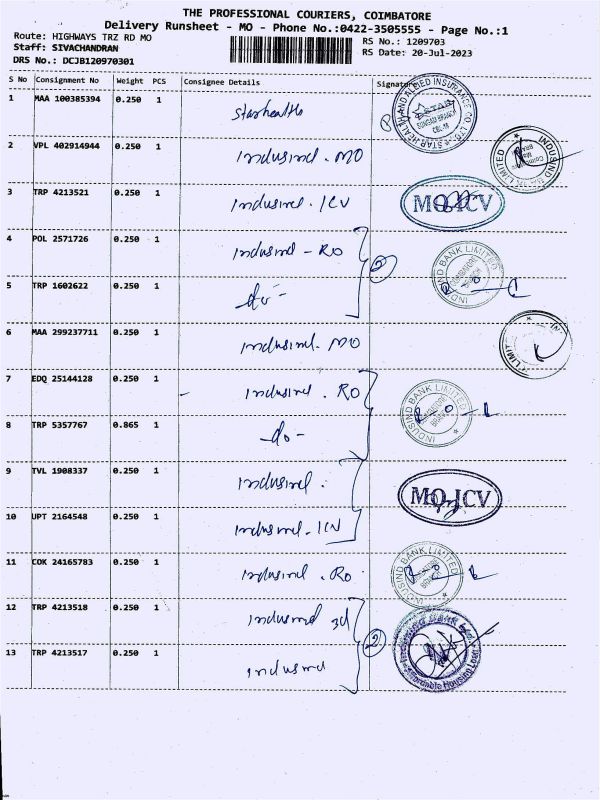 THE PROFESSIONAL COURIERS, COIMBATORE
Delivery Runsheet - MO - Phone No.:0422-3505555 - Page No.:1
Route: HIGHWAYS TRZ RD MO
RS No.: 1209703
Staff: SIVACHANDRAN
RS Date: 20-Jul-2023
DRS No.: DCJB120970301
S No Consignment No Weight PCS Consignee Details Signature
1 MAA 100385394 0.250 1 Starhealth
STAR HEALTH AND ALLIED INSURANCE CO. LTD.
2 VPL 402914944 0.250 1 Indusind. MO
INDUSIND BANK LIMITED
3 TRP 4213521 0.250 1 Indusind. ICV
MO ICV
4 POL 2571726 0.250 1 Indusind - RO
2
INDUSIND BANK LIMITED
COIMBATORE BRANCH
5 TRP 1602622 0.250 1 -do-
6 MAA 299237711 0.250 1 Indusind. MO
7 EDQ 25144128 0.250 1 Indusind. RO
INDUSIND BANK LIMITED
COIMBATORE BRANCH
8 TRP 5357767 0.865 1 -do-
9 TVL 1908337 0.250 1 Indusind.
MO ICV
10 UPT 2164548 0.250 1 Indusind. ICV
11 COK 24165783 0.250 1 Indusind. RO
INDUSIND BANK LIMITED
12 TRP 4213518 0.250 1 Indusind 3d
2
Affordable Housing Loan
13 TRP 4213517 0.250 1 Indusind